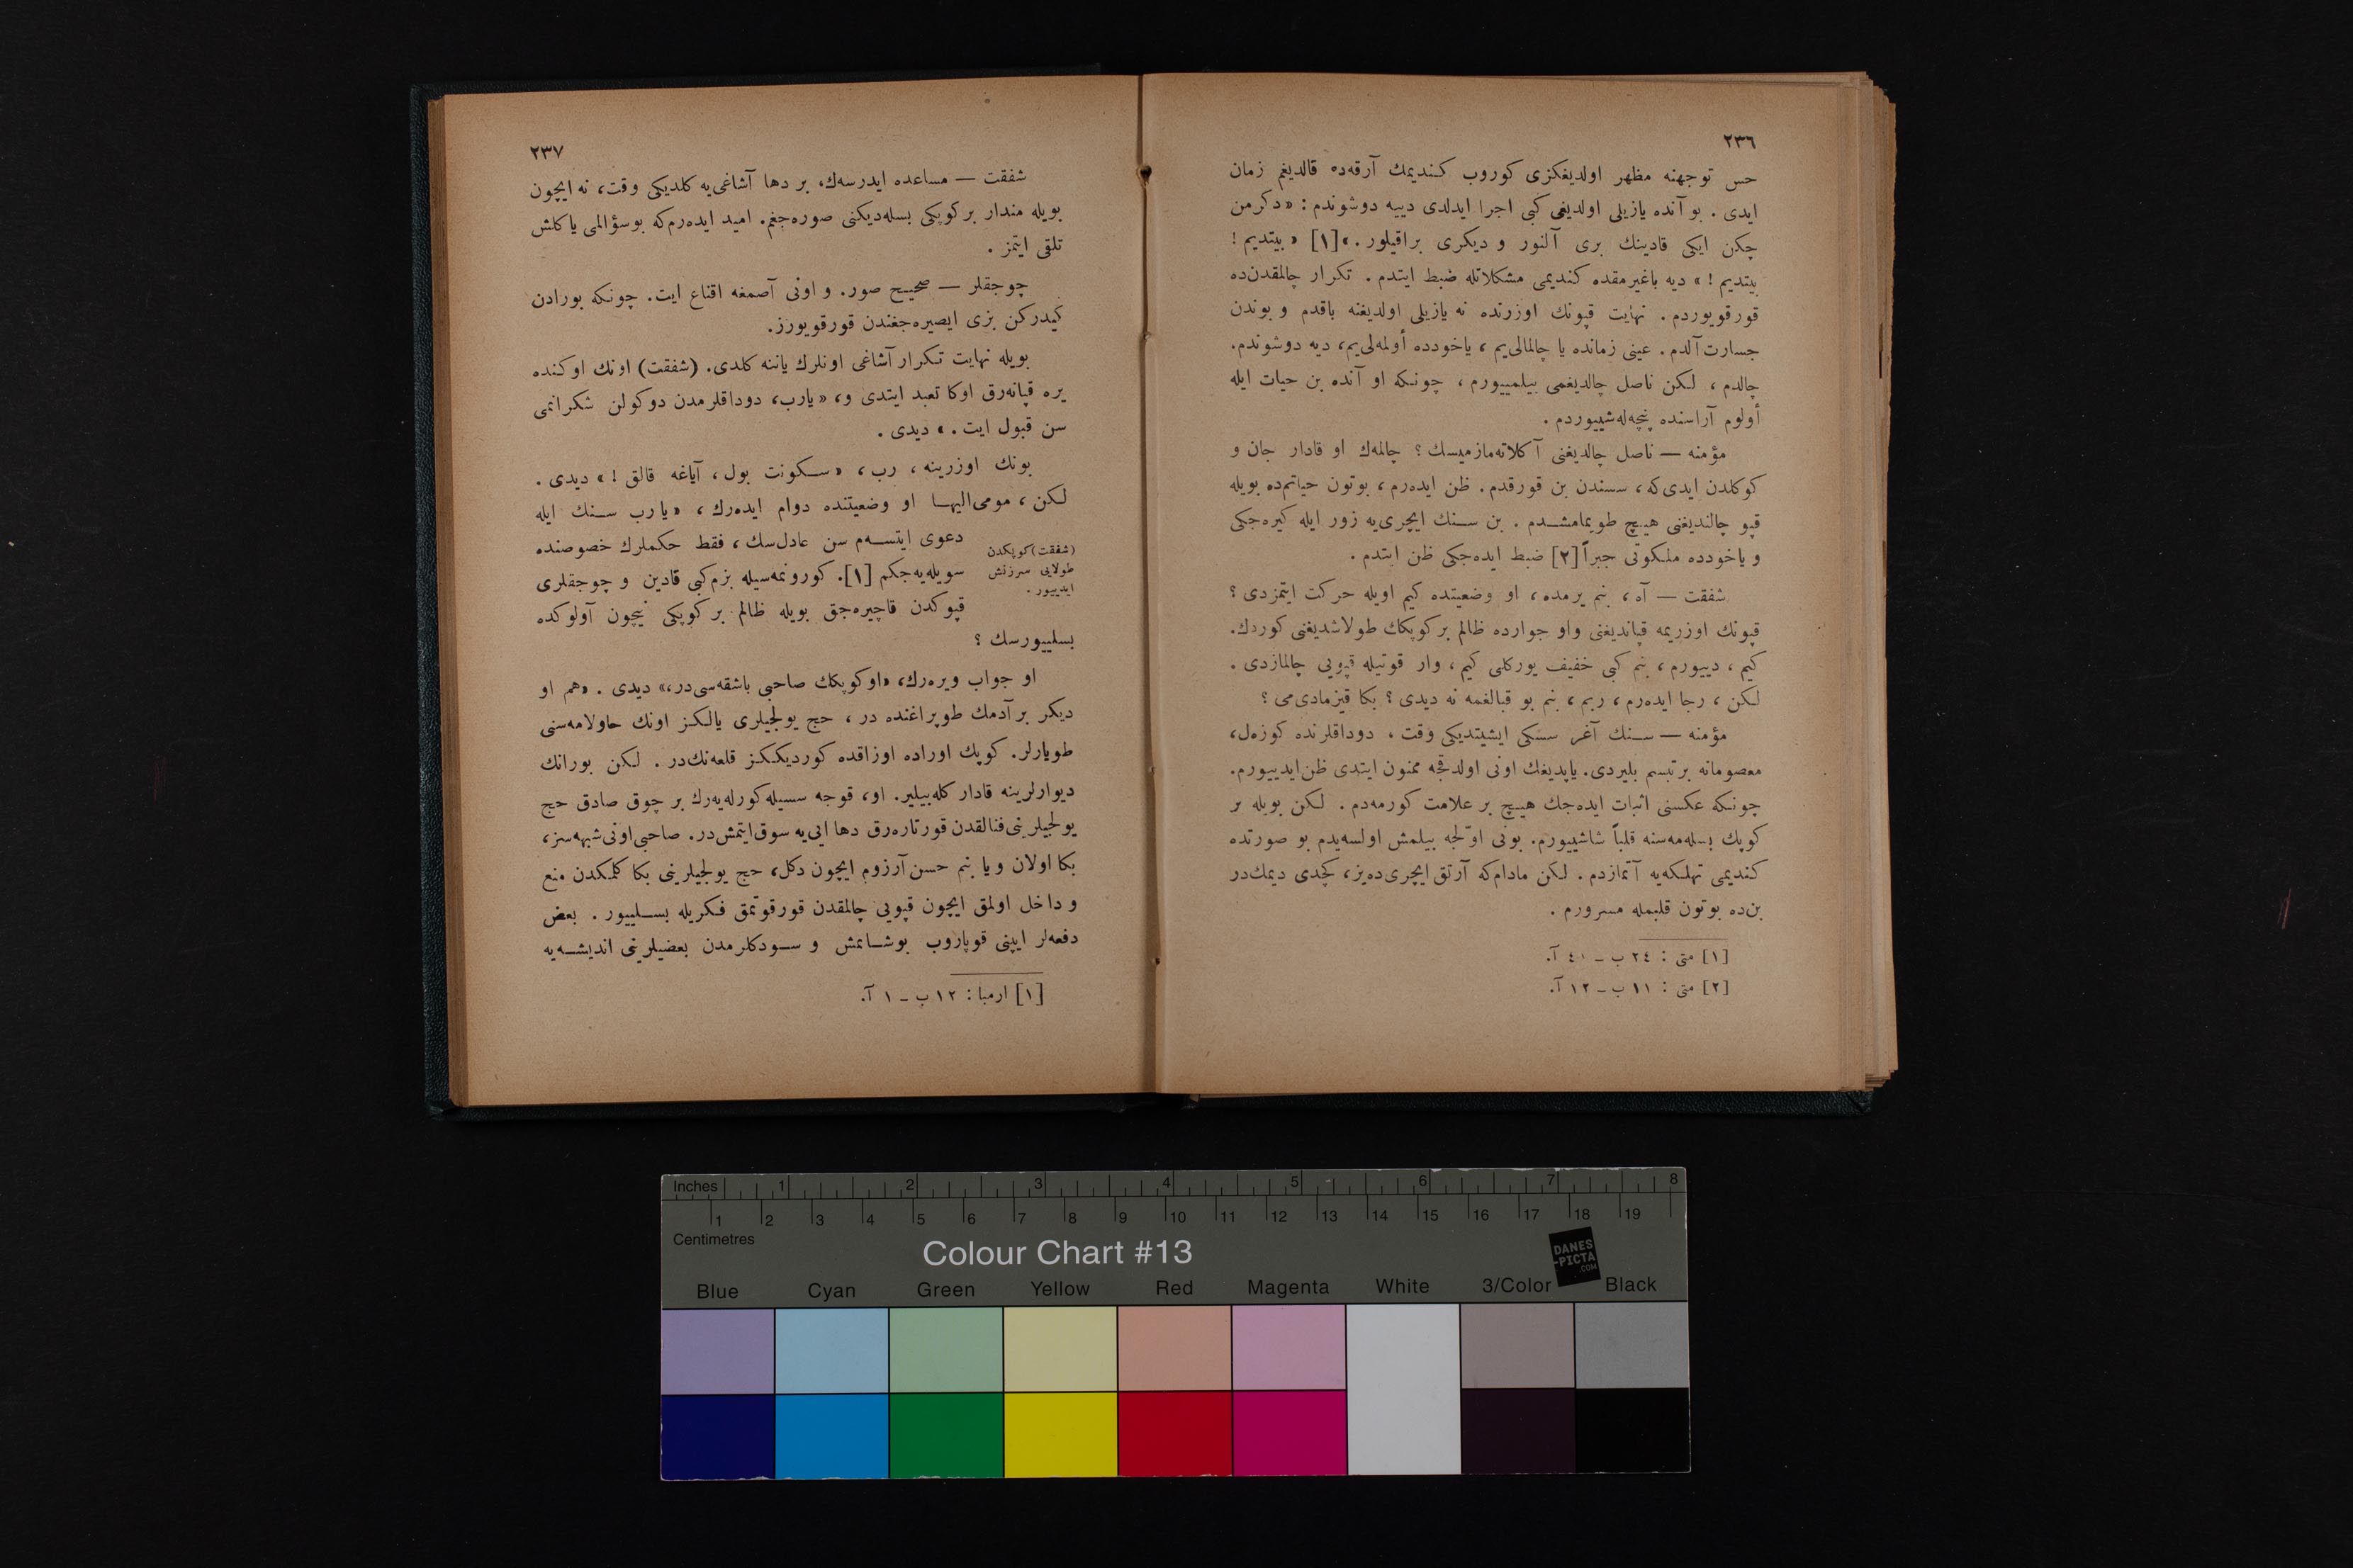 ٢٣٦
حس توجهنه مظهر اولديغكزى كوروب كنديمك آرقه‌ده قالديغم زمان
ايدى . بو آنده يازيلى اولديغى كبى اجرا ايدلدى دييه دوشوندم : «دكرمن
چكن ايكى قادينك برى آلنور و ديكرى براقيلور .»[١] «بيتديم !
بيتديم !» ديه باغيرمقده كنديمى مشكلاتله ضبط ايتدم . تكرار چالمقدن‌ده
قورقويوردم . نهايت قپونك اوزرنده نه يازيلى اولديغنه باقدم و بوندن
جسارت آلدم . عينى زمانده يا چالمالى‌يم ، ياخودده أولمه‌لى‌يم، ديه دوشوندم.
چالدم ، لكن ناصل چالديغمى بيلمييورم ، چونكه او آنده بن حيات ايله
أولوم آراسنده پنچه‌له‌شييوردم .
مؤمنه — ناصل چالديغنى آكلاته‌مازميسك ؟ چالمه‌ك او قادار جان و
كوكلدن ايدى‌كه ، سسندن بن قورقدم . ظن ايده‌رم ، بوتون حياتم‌ده بويله
قپو چالنديغنى هيچ طويمامشدم . بن سنك ايچرى‌يه زور ايله كيره‌جكى
و ياخودده ملكوتى جبراً [٢] ضبط ايده‌جكى ظن ايتدم .
شفقت — آه ، بنم يرمده ، او وضعيتده كيم اويله حركت ايتمزدى ؟
قپونك اوزريمه قپانديغنى واو جوارده ظالم بر كوپكك طولاشديغنى كوردك.
كيم ، دييورم ، بنم كبى خفيف يوركلى كيم ، وار قوتيله قپويى چالمازدى .
لكن ، رجا ايده‌رم ، ربم ، بنم بو قبالغمه نه ديدى ؟ بكا قيزمادى‌مى ؟
مؤمنه — سنك آغر سسكى ايشيتديكى وقت ، دوداقلرنده كوزه‌ل،
معصومانه بر تبسم بليردى. ياپديغك اونى اولدقجه ممنون ايتدى ظن‌ايدييورم.
چونكه عكسنى اثبات ايده‌جك هيچ بر علامت كورمه‌دم . لكن بويله بر
كوپك بسله‌مه‌سنه قلباً شاشييورم. بونى اوّلجه بيلمش اولسه‌يدم بو صورتده
كنديمى تهلكه‌يه آتمازدم . لكن مادام‌كه آرتق ايچرى‌ده‌يز، كچدى ديمك‌در
بن‌ده بوتون قلبمله مسرورم .
[١] متى : ٢٤ ب ـ ٤٠ آ.
[٢] متى : ١١ ب ـ ١٢ آ.
٢٣٧
شفقت — مساعده ايدرسه‌ك، بر دها آشاغى‌يه كلديكى وقت، نه ايچون
بويله مندار بر كوپكى بسله‌ديكنى صوره‌جغم. اميد ايده‌رم‌كه بوسؤالمى ياكلش
تلقى ايتمز .
چوجقلر — صحيح صور. و اونى آصمغه اقناع ايت. چونكه بورادن
كيدركن بزى ايصيره‌جغندن قورقويورز.
بويله نهايت تكرار آشاغى اونلرك ياننه كلدى. (شفقت) اونك اوكنده
يره قپانه‌رق اوكا تعبد ايتدى و، «يارب، دوداقلرمدن دوكولن شكرانمى
سن قبول ايت .» ديدى .
بونك اوزرينه ، رب ، «سكونت بول ، آياغه قالق !» ديدى .
لكن ، مومى‌اليها او وضعيتنده دوام ايده‌رك ، «يا رب سنك ايله
دعوى ايتسه‌م سن عادل‌سك ، فقط حكملرك خصوصنده
سويله‌يه‌جكم [١]. كورونمه‌سيله بزم‌كبى قادين و چوجقلرى
قپوكدن قاچيره‌جق بويله ظالم بر كوپكى نيچون آولوكده
بسلييورسك ؟
(شفقت)كوپكدن
طولايى سرزنش
ايدييور .
او جواب ويره‌رك، «اوكوپكك صاحبى باشقه‌سى‌در،» ديدى . «هم او
ديكر بر آدمك طوپراغنده در ، حج يولجيلرى يالكز اونك حاولامه‌سنى
طويارلر. كوپك اوراده اوزاقده كورديككز قلعه‌نك‌در . لكن بورانك
ديوارلرينه قادار كله‌بيلير. او، قوجه سسيله كورله‌يه‌رك بر چوق صادق حج
يولجيلرينى فنالقدن قورتاره‌رق دها ايى‌يه سوق‌ايتمش‌در. صاحبى اونى شبهه‌سز،
بكا اولان ويا بنم حسن آرزوم ايچون دكل، حج يولجيلرينى بكا كلمكدن منع
و داخل اولمق ايچون قپويى چالمقدن قورقوتمق فكريله بسلييور . بعض
دفعه‌لر ايپنى قوپاروب بوشانمش و سودكلرمدن بعضيلرينى انديشه‌يه
[١] ارميا : ١٢ ب ـ ١ آ.
Inches 1 2 3 4 5 6 7 8
1 2 3 4 5 6 7 8 9 10 11 12 13 14 15 16 17 18 19
Centimetres
Colour Chart #13
DANES
-PICTA
.COM
Blue Cyan Green Yellow Red Magenta White 3/Color Black